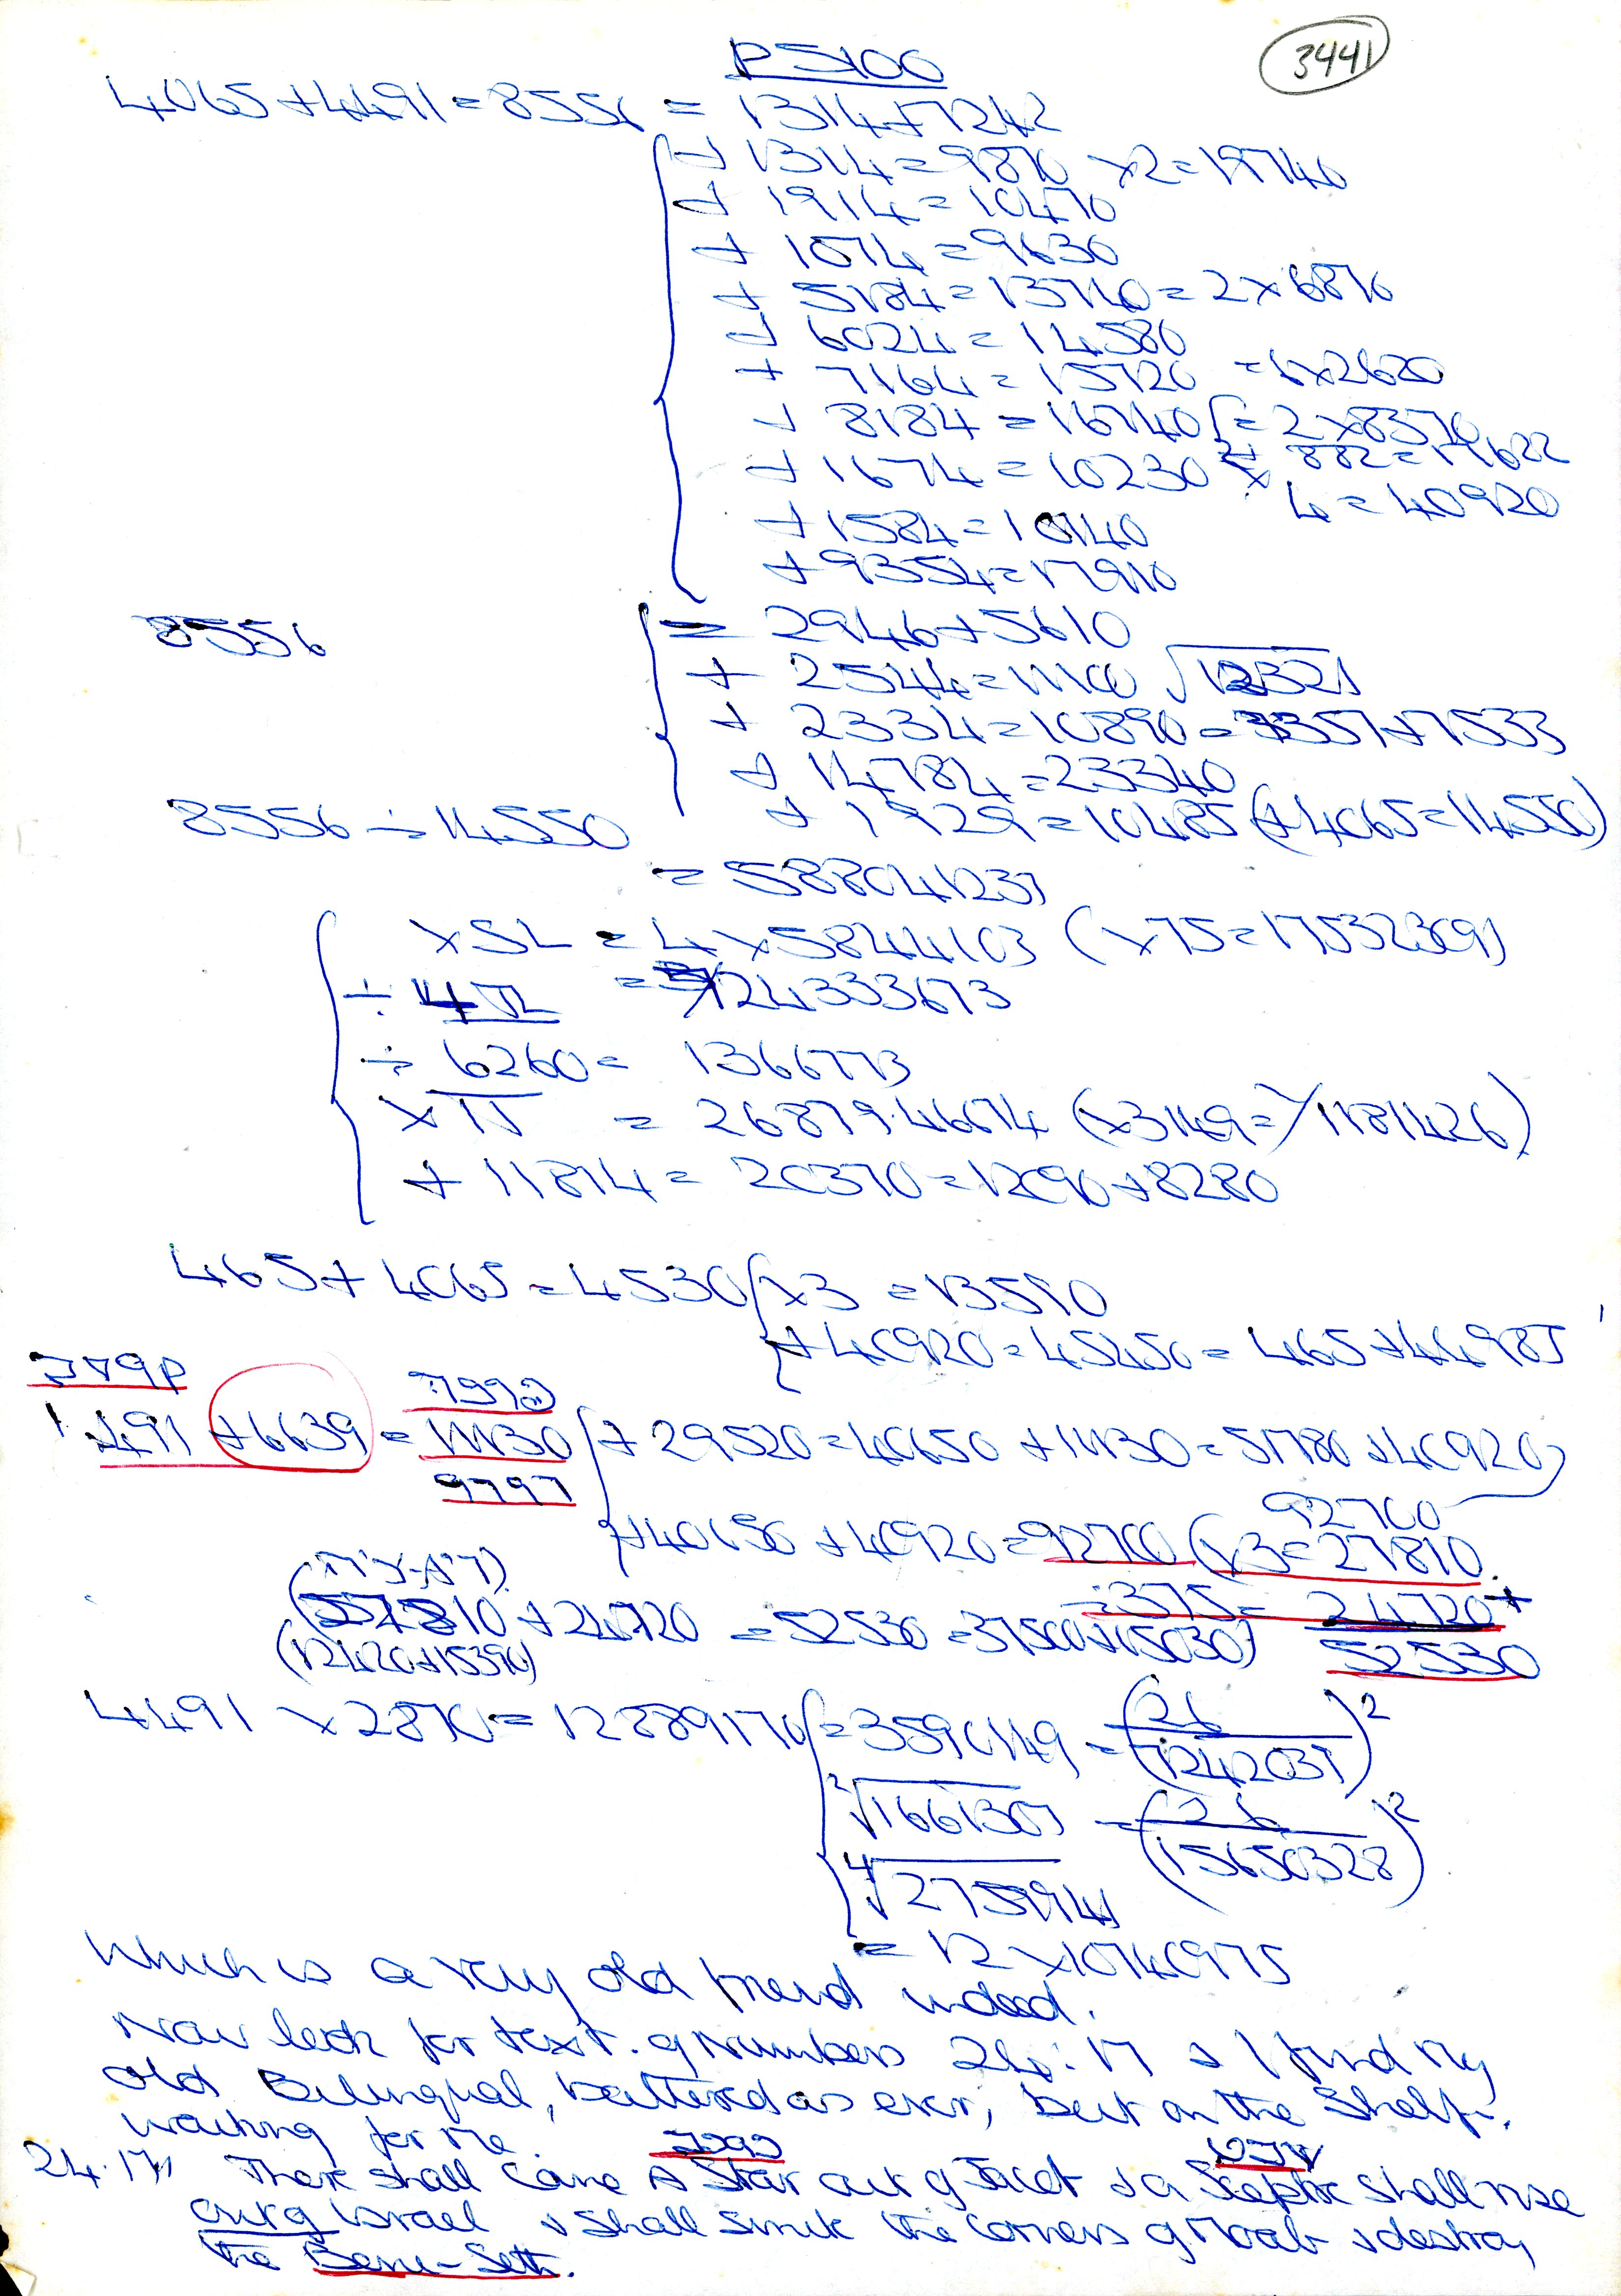 3441
P5100
4065+4491=8556 = 1314+7242
+ 1314=9870 ×2=19740
+ 1914=10470
+ 1074=9630
+ 5184=13740=2×6870
+ 6024=14580
+ 7164=15720 =6×2620
+ 8184=16740 = 2×8370
+ 882=17622
+ 1674=10230 × 4=40920
+1584=10140
+9354=17910
8556 = 2946+5610
+ 2544=11100 √12321
+ 2334=10890=3357+7533
+ 14784=23340
+ 1929=10485 (+4065=14550)
8556 ÷ 14550
= 588041237
×SL = 4×5844103 (×75=17532309)
= 124333673
÷ 6260= 1366773
×π = 26879.46674 (×3149=1/1181426)
+ 11814= 20370=12090+8280
465+4065=4530 ×3 =13590
+40920=45450=465+44985
4491 +6639=11130 + 29520=40650 +11130=51780 +40920
92700
+40650 +40920=92700 (×3=27810
÷375= 24720+
27810+24720 =52530 =37500+15030)
52530
(12420+15390)
4491 ×2870=12889170 =3590149 = (26/1242037)²
²√1661307 = (26/15650328)²
⁴√2758941
= 12×10740975
Which is a very old friend indeed.
Now look for text. of Numbers 24:17 & I find my
old Bilingual, battered as ever, but on the shelf,
waiting for me.
24.17) There shall come A Star out of Jacob & a Sceptre shall rise
out of Israel & shall smite the corners of Moab & destroy
the Bene-Seth.